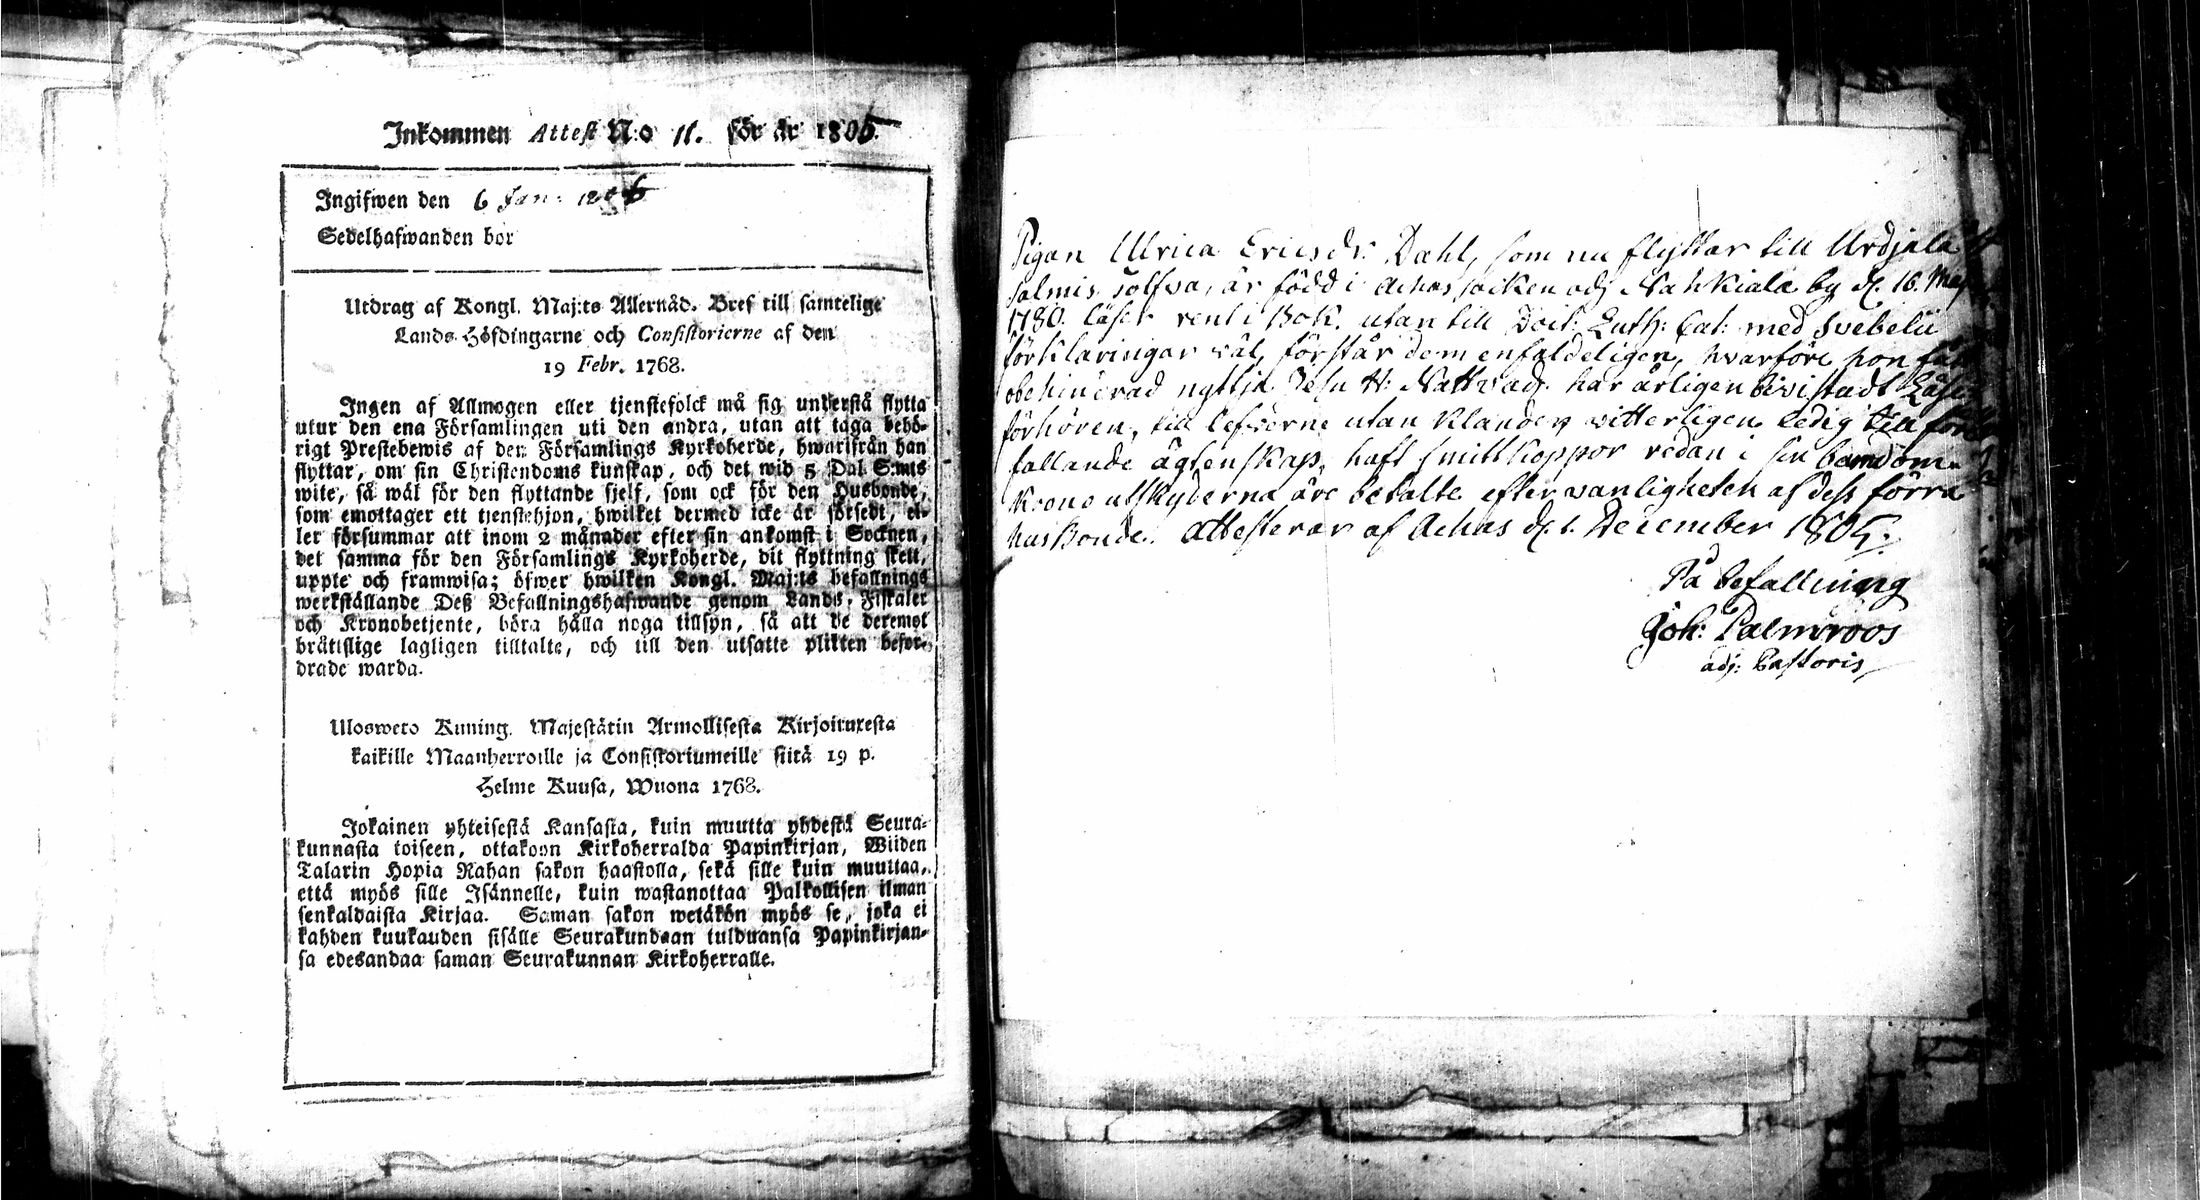 Inkommen Attest N:o 11. för år 1806.
Ingifwen den 6 Jan: 1806
Sedelhafwanden bor
Utdrag af Kongl. Maj:ts Allernåd. Bref till samtelige
Lands-Höfdingarne och Consistorierne af den
19 Febr. 1768.
Ingen af Allmogen eller tjenstefolck må sig understå flytta
utur den ena Församlingen uti den andra, utan att taga behö-
rigt Prestebewis af den Församlings Kyrkoherde, hwarifrån han
flyttar, om sin Christendoms kunskap, och det wid 5 Dal S:mts
wite, så wäl för den flyttande sjelf, som ock för den Husbonde,
som emottager ett tjenstehjon, hwilket dermed icke är försedt, el-
ler försummar att inom 2 månader efter sin ankomst i Socknen,
det samma för den Församlings Kyrkoherde, dit flyttning skett,
uppte och framwisa; öfwer hwilken Kongl. Maj:ts befallnings
werkställande Deß Befallningshafwande genom Lands-Fiskaler
och Kronobetjente, böra hålla noga tillsyn, så att de deremot
bråttslige lagligen tilltalte, och till den utsatte plikten befor-
drade warda.
Uloswето Kuning. Majestätin Armollisesta Kirjoituxesta
kaikille Maanherroille ja Consistoriumeille siitä 19 p.
Helme Kuusa, Wuona 1768.
Jokainen yhteisestä Kansasta, kuin muutta yhdestä Seura-
kunnasta toiseen, ottakoon Kirkoherralda Papinkirjan, Wiiden
Talarin Hopia Rahan sakon haastolla, sekä sille kuin muuttaa,
että myös sille Isännelle, kuin wastanottaa Palkollisen ilman
senkaldaista Kirjaa. Saman sakon wetäkön myös se, joka ei
kahden kuukauden sisälle Seurakundaan tulduansa Papinkirjan-
sa edesandaa saman Seurakunnan Kirkoherralle.
Pigan Ulrica Ericsdr. Dahl, som nu flyttar till Urdjala
Salmis Tolfva, är född i Achas socken och Nahkiala by d. 16. Maj
1780. läser rent i Bok, utan till Doct: Luth: Cat: med Svebelii
förklaringar väl, förstår dem enfaldeligen, hvarföre hon fått
obehindrad nyttja Jesu H: Nattvard. har årligen bevistadt Läse-
förhören, till lefverne utan klander, witterligen ledig till före
fallande ägtenskap, haft smittkoppor redan i sin barndom.
Krono utskylderna äro betalte efter vanligheten af dess förra
husbonde. Attesterar af Achas d. 1. December 1805.
På befallning
Joh: Palmroos
adj: Pastoris